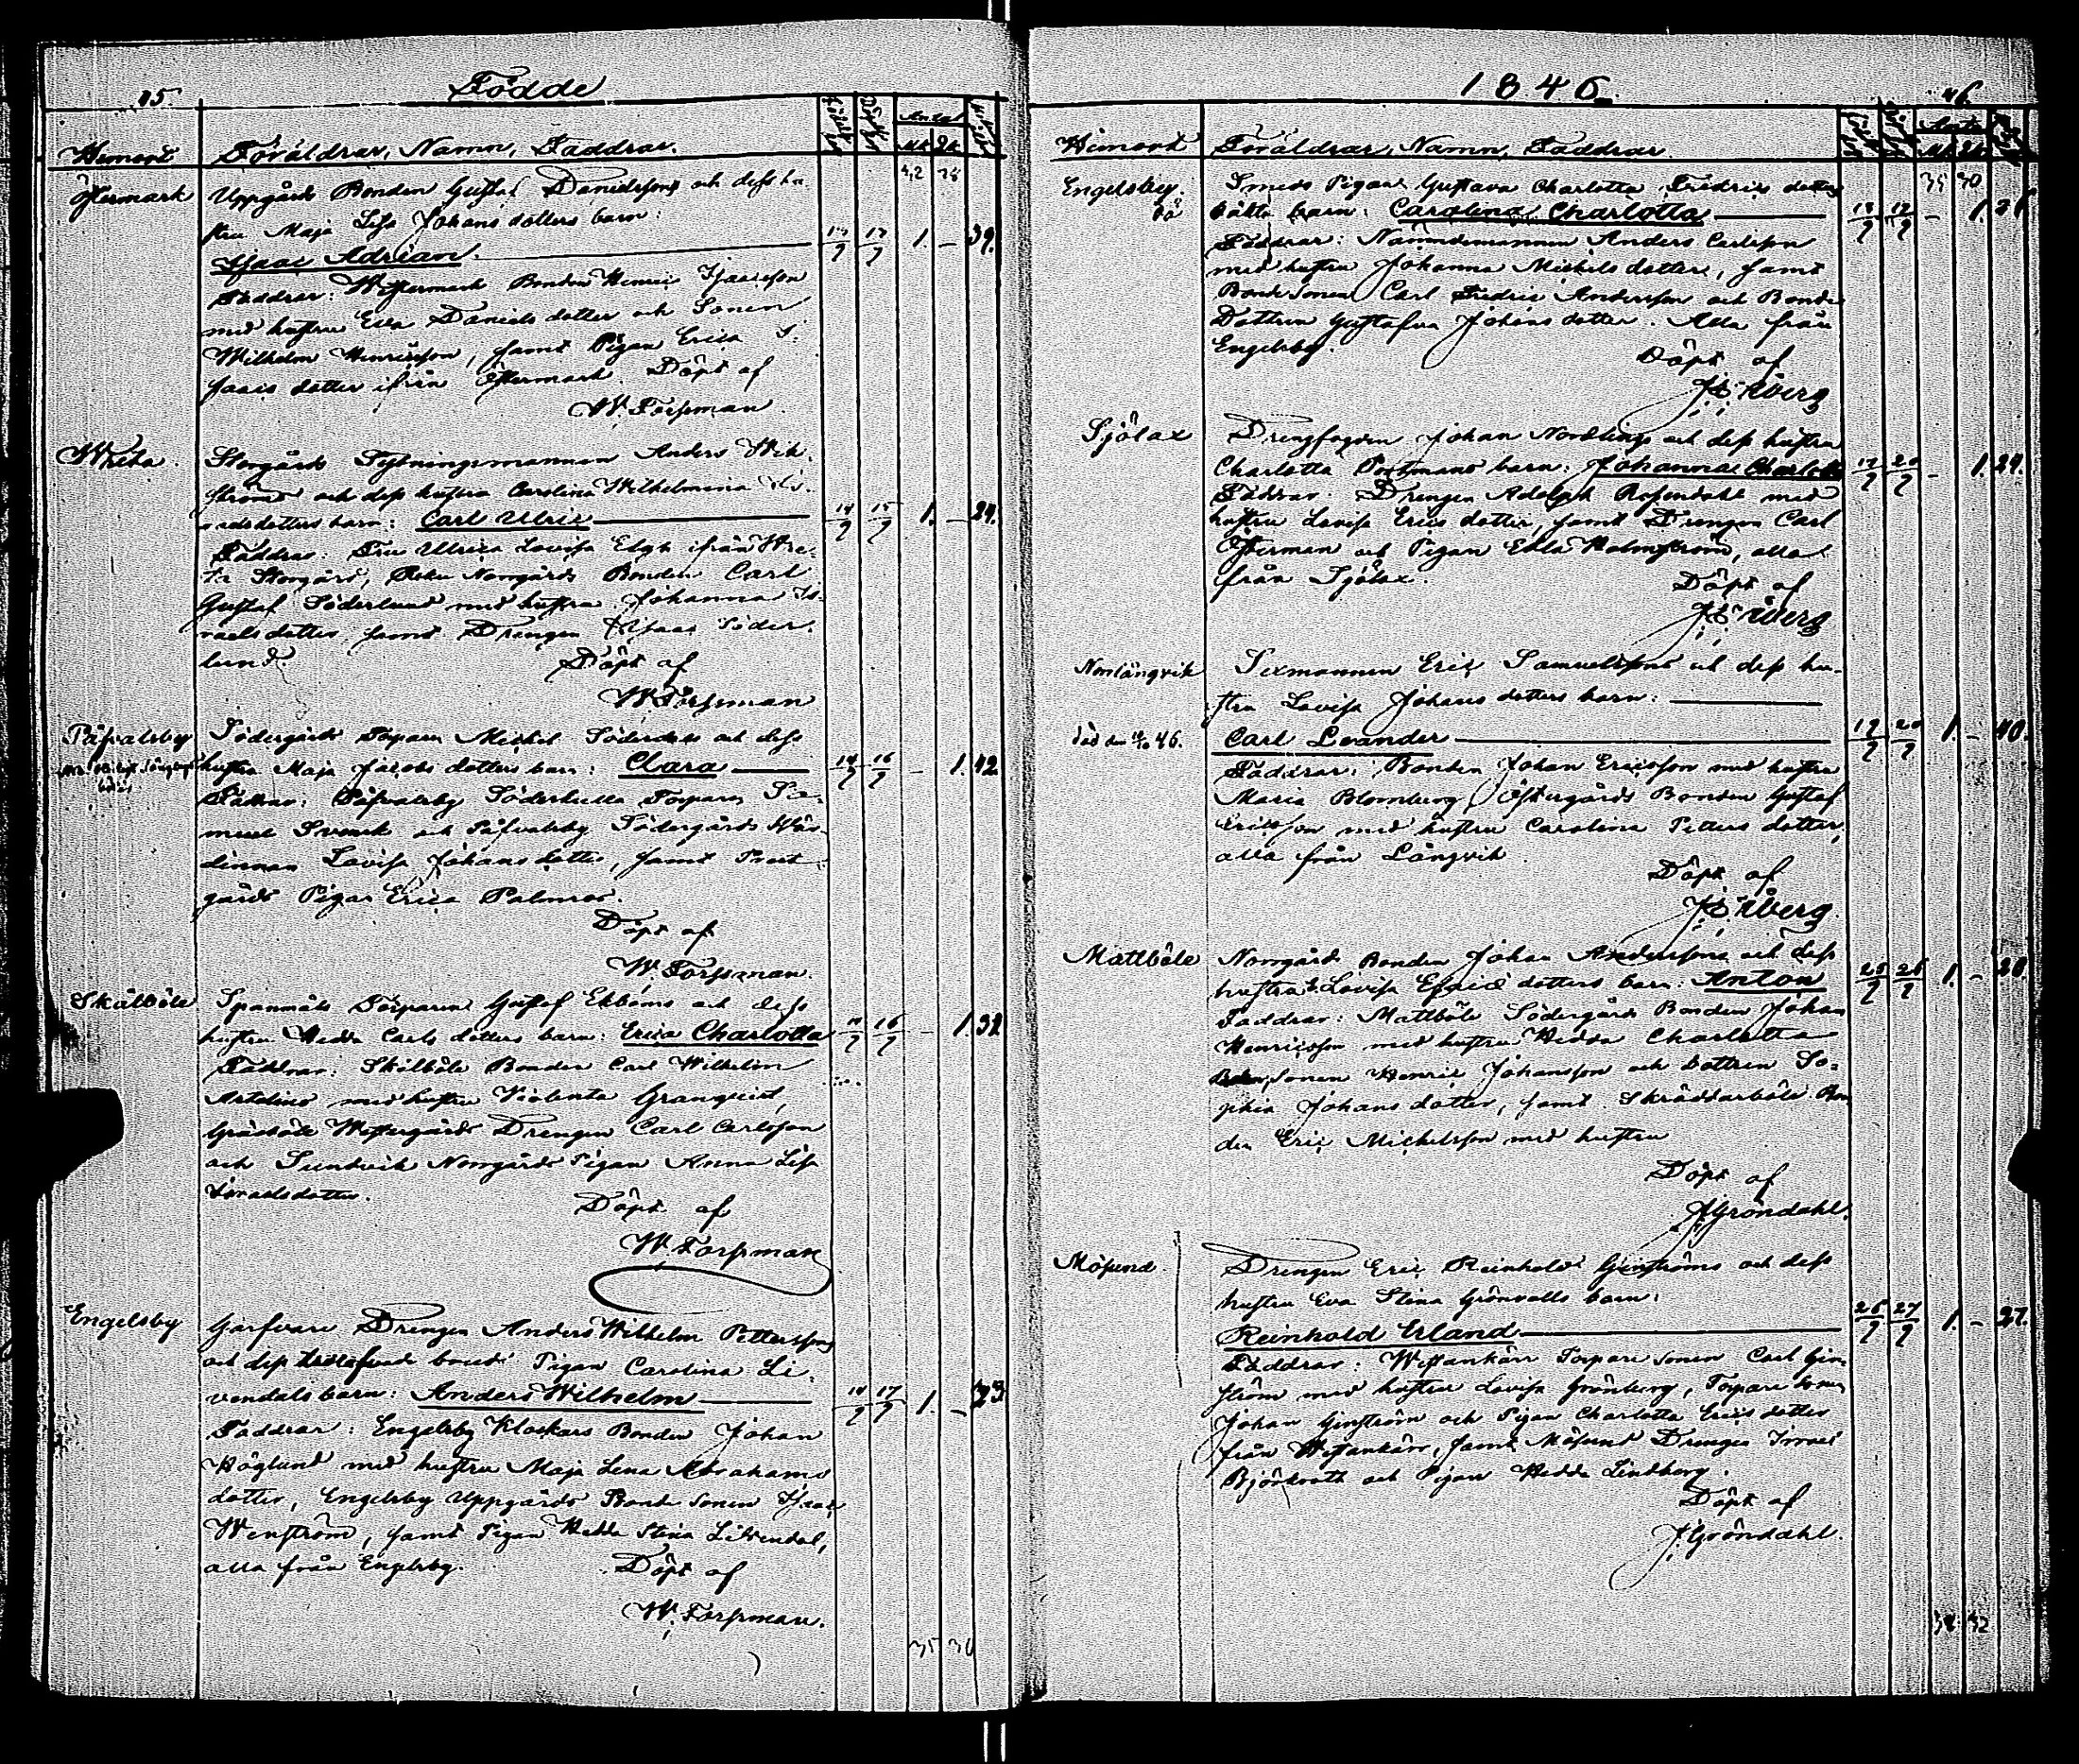 15.
Födde
Hemort
Föräldrar, Namn, Faddrar.
Antal
Mk. Qk.
32 28
Östermark
Uppgårds Bonden Gustaf Danielssons och dess hu-
stru Maja Lisa Johans dotters barn:
Isaac Adrian.
13/9 13/9 1. – 39.
Faddrar: Westermark Bonden Henric Isaacsson
med hustru Eva Daniels dotter och Sonen
Wilhelm Henricsson, samt Pigan Erica I-
saacs dotter ifrån Östermark. Döpt af
W. Forssman.
Wreta.
Storgårds Sytningsmannen Anders Wik-
ströms och dess hustru Carolina Wilhelmina Is-
raelsdotters barn: Carl Ulric
14/9 15/9 1. – 24.
Faddrar: Fru Ulrica Lovisa Elgh ifrån Wre-
ta Storgård, Norrgårds Bonden Carl
Gustaf Söderlund med hustru Johanna Is-
raels dotter, samt Drengen Isaac Söder-
lund.
Döpt af
W. Forssman
Påfvalsby
Södergårds Torparen Mickel Söderdahls och dess
hustru Maja Jacobs dotters barn: Clara
14/9 16/9 – 1. 42.
Faddrar: Påfvalsby Söderkulla Torparen Sa-
muel Svensk och Påfvalsby Södergårds Wär-
dinnan Lovisa Johans dotter, samt Prest-
gårds Pigan Erica Palmros.
Döpt af
W. Forssman.
Skålböle
Spannmåls Torparen Gustaf Ekboms och dess
hustru Hedda Carls dotters barn: Erica Charlotta
14/9 16/9 – 1. 32
Faddrar: Skålböle Bonden Carl Wilhelm
Artelius med hustru Violenta Granqvist,
Gräsböle Westergårds Drengen Carl Carlsson
och Sundvik Norrgårds Pigan Anna Lisa
Israelsdotter.
Döpt af
W. Forssman
Engelsby
Garfvare Drengen Anders Wilhelm Petterssons
och dess trolofvade brud Pigan Carolina Li-
vendals barn: Anders Wilhelm
14/9 17/9 1. – 23.
Faddrar: Engelsby Klockars Bonden Johan
Höglund med hustru Maja Lena Abrahams
dotter, Engelsby Uppgårds Bonde Sonen Isaac
Wenström, samt Pigan Hedda Stina Livendal,
alla från Engelsby.
Döpt af
W. Forssman.
35 30
1846.
16.
Hemort
Föräldrar, Namn, Faddrar.
Antal
35 30
Engelsby.
Smeds Pigan Gustava Charlotta Fredrics dotters
oäkta barn: Carolina Charlotta
– 1. 21
Faddrar: Nämndemannen Anders Carlsson
med hustru Johanna Mickels dotter, samt
Bonde Sonen Carl Fredric Andersson och Bonde
Dottren Gustafva Johans dotter. Alla från
Engelsby.
Döpt af
Åberg
Sjölax
Drengfogden Johan Nordlings och dess hustru
Charlotta Portmans barn: Johanna Charlotta
17/9 20/9 – 1. 24.
Faddrar: Drengen Adolph Rosendahl med
hustru Lovisa Erics dotter, samt Drengen Carl
Österman och Pigan Ulla Holmström, alla
från Sjölax.
Döpt af
Åberg
Norrlångvik
Sexmannen Eric Samuelssons och dess hu-
stru Lovisa Johans dotters barn:
död den 46.
Carl Leander
17/9 20/9 1. – 40.
Faddrar: Bonden Johan Ericsson med hustru
Maria Blomberg, Östergårds Bonden Gustaf
Ericsson med hustru Carolina Petters dotter,
alla från Långvik
Döpt af
Åberg.
Mattböle
Norrgårds Bonden Johan Anderssons och dess
hustru Lovisa dotters barn: Anton
25/9 26/9 1. – 28.
Faddrar: Mattböle Södergårds Bonden Johan
Henricsson med hustru Hedda Charlotta
Sonen Henric Johansson och Dottren So-
phia Johans dotter, samt Skräddarböle Bon
den Eric Mickelsson med hustru
Döpt af
J. Gröndahl.
Mösund.
Drengen Eric Reinhold Ginströms och dess
hustru Eva Stina Grönvalls barn:
Reinhold Erland
26/9 27/9 1. – 27.
Faddrar: Westankärr Torpare sonen Carl Gin-
ström med hustru Lovisa Grönberg, Torpare sonen
Johan Ginström och Pigan Charlotta Erics dotter
från Westankärr, samt Mösund Drengen Israel
Björkroth och Pigan Hedda Lindberg.
Döpt af
J. Gröndahl.
38 32